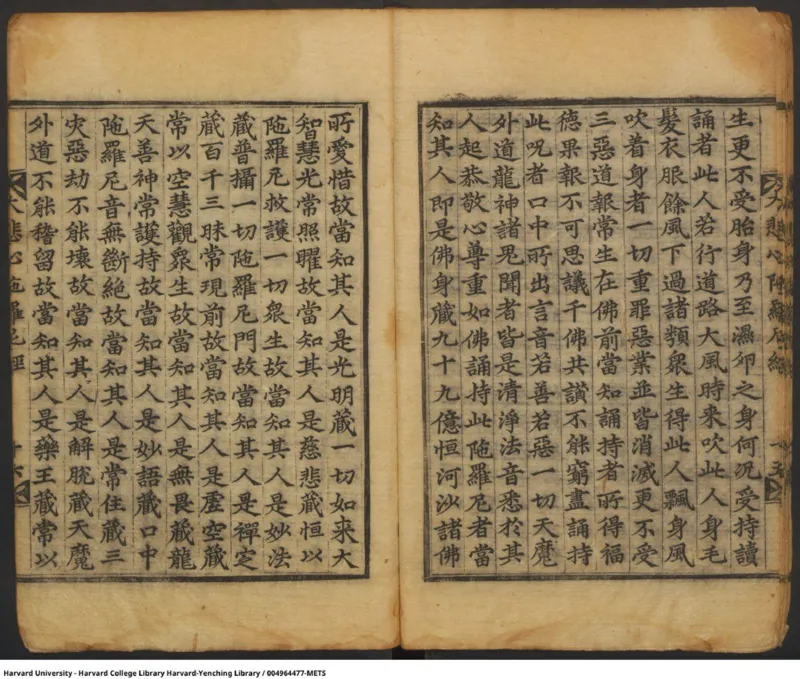 生更不受胎身乃至濕卵之身何況受持讀
誦者此人若行道路大風時來吹此人身毛
髮衣服餘風下過諸類衆生得此人飄身風
吹着身者一切重罪惡業並皆消滅更不受
三惡道報常生在佛前當知誦持者所得福
徳果報不可思議千佛共讃不能窮盡誦持
此呪者口中所出言音若善若惡一切天魔
外道龍神諸鬼聞者皆是清淨法音悉於其
人起恭敬心尊重如佛誦持此陁羅尼者當
知其人即是佛身藏九十九億恒河沙諸佛
所愛惜故當知其人是光明藏一切如來大
智慧光常照曜故當知其人是慈悲藏恒以
陁羅尼救護一切衆生故當知其人是妙法
藏普攝一切陁羅尼門故當知其人是禪定
藏百千三昧常現前故當知其人是虛空藏
常以空慧觀衆生故當知其人是無畏藏龍
天善神常護持故當知其人是妙語藏口中
陁羅尼音無斷絕故當知其人是常住藏三
灾惡劫不能壞故當知其人是解脫藏天魔
外道不能稽留故當知其人是藥王藏常以
大悲心陁羅尼經
十六
Harvard University - Harvard College Library Harvard-Yenching Library / 004964477-METS